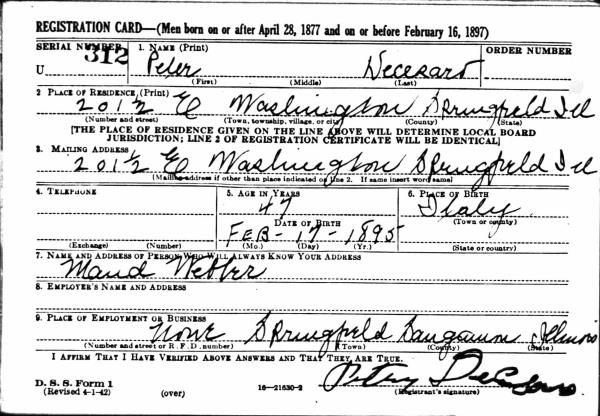 REGISTRATION CARD—(Men born on or after April 28, 1877 and on or before February 16, 1897)
SERIAL NUMBER 1. NAME (Print) ORDER NUMBER
U 312 Peter Decesaro
(First) (Middle) (Last)
2. PLACE OF RESIDENCE (Print)
201½ E Washington Springfield Ill
(Number and street) (Town, township, village, or city) (County) (State)
[THE PLACE OF RESIDENCE GIVEN ON THE LINE ABOVE WILL DETERMINE LOCAL BOARD
JURISDICTION; LINE 2 OF REGISTRATION CERTIFICATE WILL BE IDENTICAL]
3. MAILING ADDRESS
201½ E Washington Springfield Ill
[Mailing address if other than place indicated on line 2. If same insert word same]
4. TELEPHONE 5. AGE IN YEARS 6. PLACE OF BIRTH
47 Italy
DATE OF BIRTH (Town or county)
FEB - 17 - 1895
(Exchange) (Number) (Mo.) (Day) (Yr.) (State or country)
7. NAME AND ADDRESS OF PERSON WHO WILL ALWAYS KNOW YOUR ADDRESS
Maud Webber
8. EMPLOYER'S NAME AND ADDRESS
9. PLACE OF EMPLOYMENT OR BUSINESS
None Springfield Sangamon Illinois
(Number and street or R. F. D. number) (Town) (County) (State)
I AFFIRM THAT I HAVE VERIFIED ABOVE ANSWERS AND THAT THEY ARE TRUE.
D. S. S. Form 1
(Revised 4-1-42) (over) 16—21630-2 (Registrant's signature)